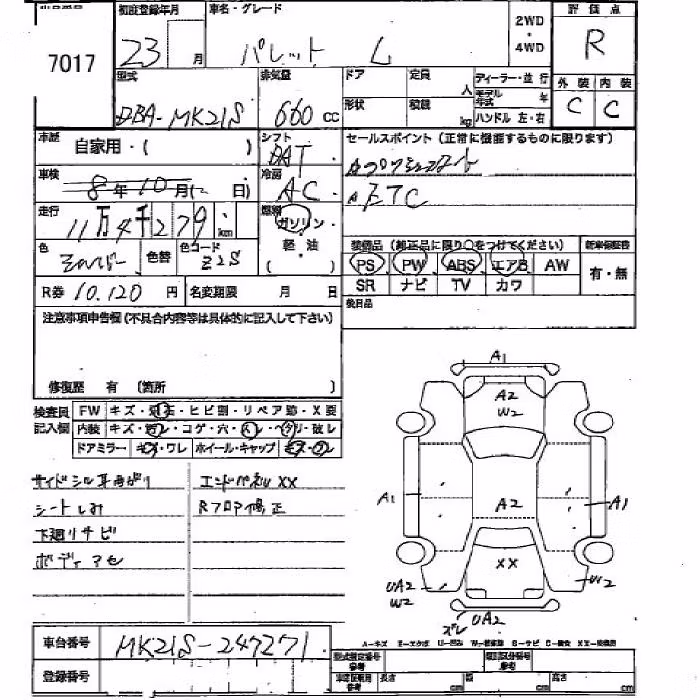 7017
初度登録年月
23 月
車名・グレード
パレット L
2WD
・
4WD
評価点
R
外装 内装
C C
型式
DBA-MK21S
排気量
660 cc
ドア
定員
人
形状
積載
kg
ディーラー・並行
モデル
年式
年
ハンドル 左・右
車歴
自家用・( )
車検
8年10月( 日)
走行
11万4千279 km
色
色替
色コード
Z2S
シフト
DAT
冷房
AC
燃料
ガソリン
軽・油
( )
セールスポイント(正常に機能するものに限ります)
ETC
装備品(純正品に限り○をつけてください)
PS PW ABS エアB AW
SR ナビ TV カワ
新車保証書
有・無
後日品
R券 10,120 円
名変期限 月 日
注意事項申告欄(不具合内容等は具体的に記入して下さい)
修復歴 有 (箇所 )
検査員
記入欄
FW キズ・飛石・ヒビ割・リペア跡・X要
内装 キズ・汚レ・コゲ・穴・スレ・ヘタリ・破レ
ドアミラー キズ・ワレ ホイール・キャップ キズ・ワレ
サイドシル耳曲がり
シートしみ
下廻りサビ
エンドパネルXX
Rフロア修正
A1
A2
W2
A1
A2
A1
XX
UA2
W2
W2
UA2
ズレ
車台番号
MK21S-247271
登録番号
型式指定番号
参考
類別区分番号
参考
車庫証明用
参考
長さ
cm
幅
cm
高さ
cm